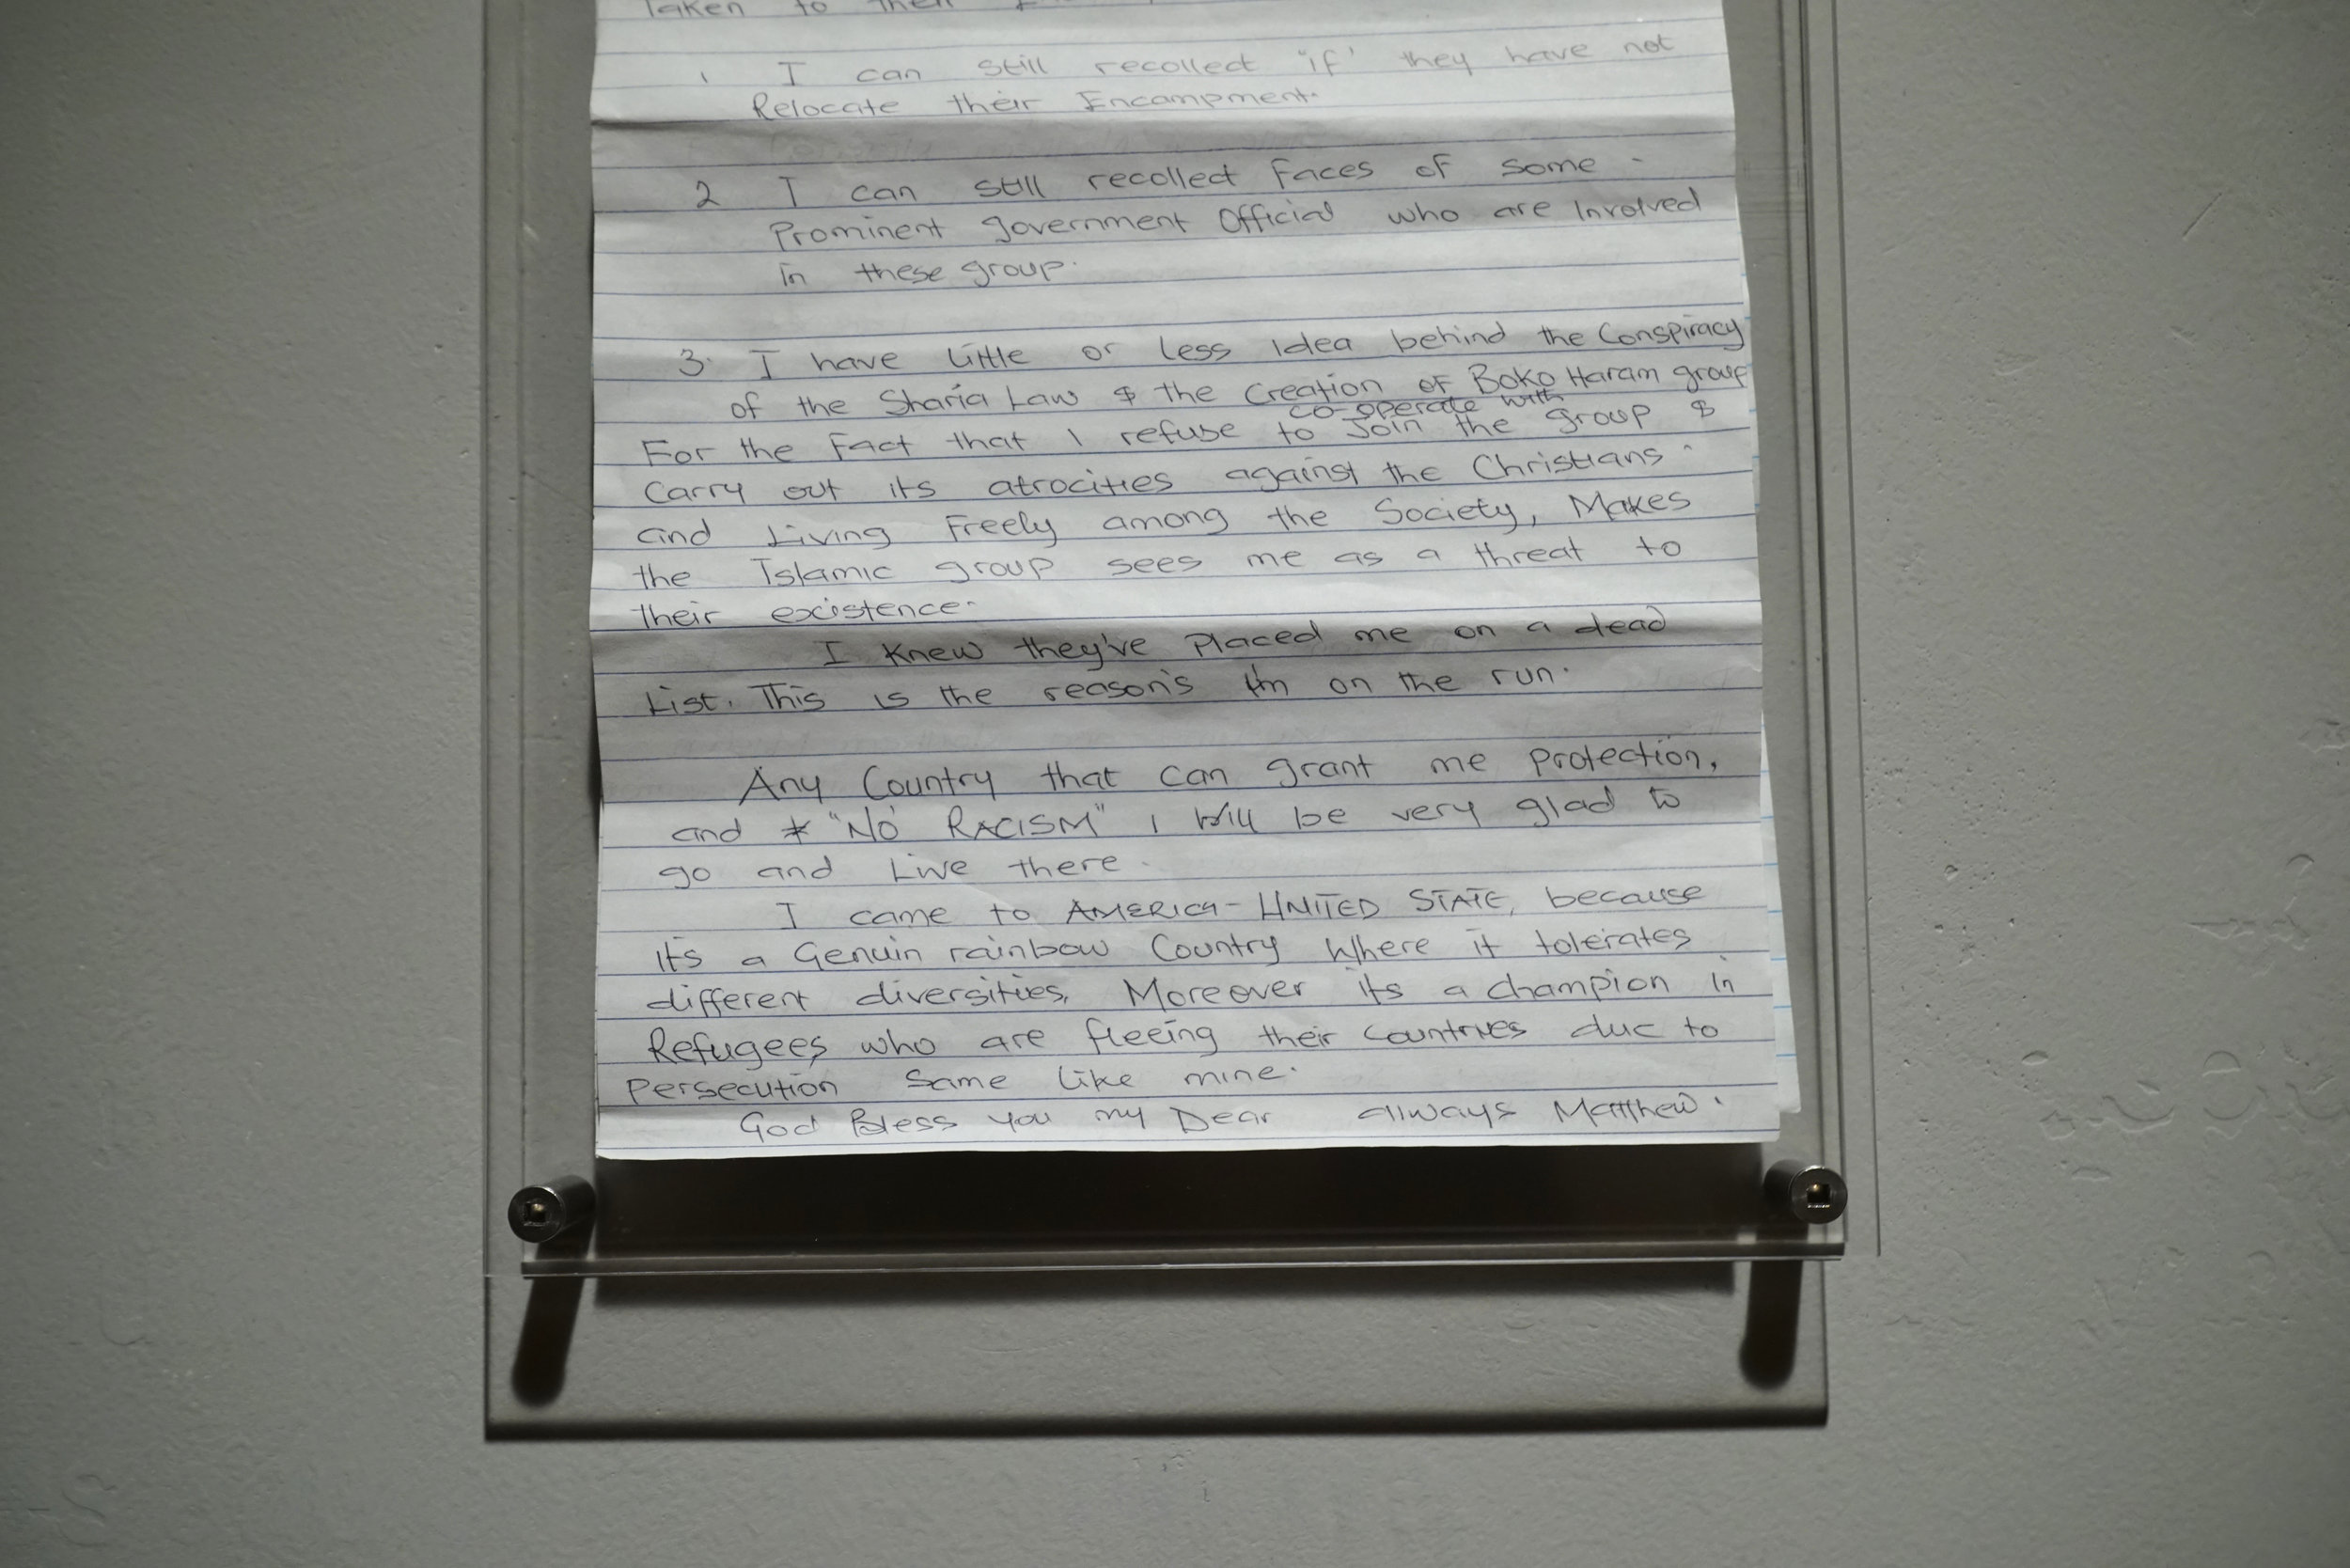 Taken to their
1 I can still recollect "if' they have not
Relocate their Encampment.
2 I can still recollect faces of some -
Prominent government Official who are Involved
in these group.
3. I have little or less idea behind the Conspiracy
of the Sharia Law & the Creation of Boko Haram group
co-operate with
For the Fact that I refuse to Join the group &
Carry out its atrocities against the Christians -
and Living Freely among the Society, Makes
the Islamic group sees me as a threat to
their existence.
I knew they've placed me on a dead
List. This is the reason's I'm on the run.
Any Country that can grant me protection,
and * "NO RACISM" I will be very glad to
go and Live there.
I came to AMERICA - UNITED STATE, because
its a Genuin rainbow Country Where it tolerates
different diversities, Moreover its a champion in
Refugees who are fleeing their Countries due to
Persecution Same like mine.
God Bless you my Dear always Matthew.